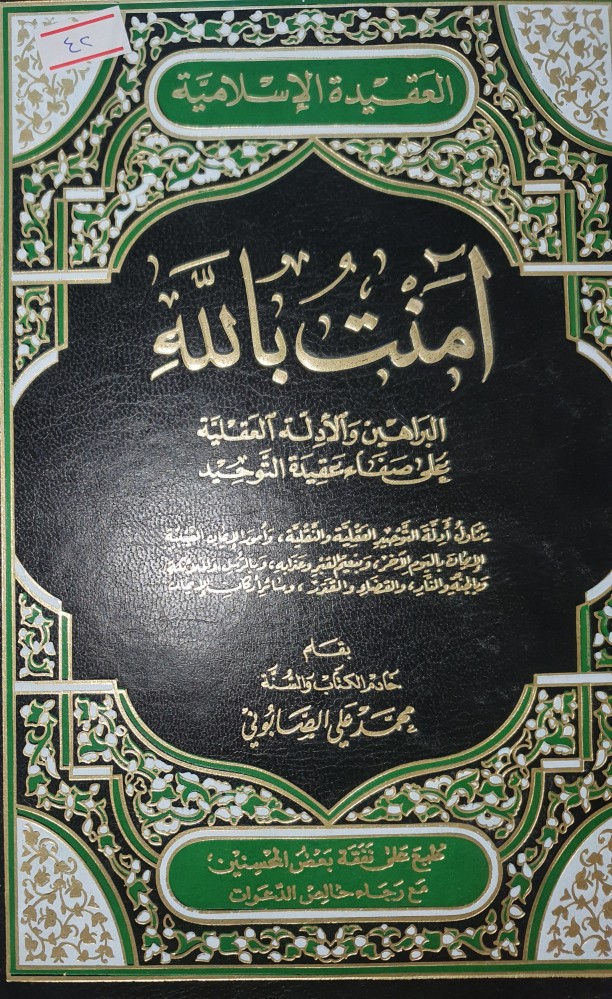 ٤٢
العقيدة الإسلامية
آمَنْتُ بِاللَّهِ
البراهين والأدلة العقلية
على صفاء عقيدة التوحيد
يتناول أدلة التوحيد العقلية والنقلية، وأمور الإيمان الغيبية
الإيمان باليوم الآخر، ونعيم القبر وعذابه، وبالرسل والملائكة
والجنة والنار، والقضاء والقدر، وسائر أركان الإيمان
بقلم
خادم الكتاب والسنة
محمد علي الصابوني
طبع على نفقة بعض المحسنين،
مع رجاء خالص الدعوات